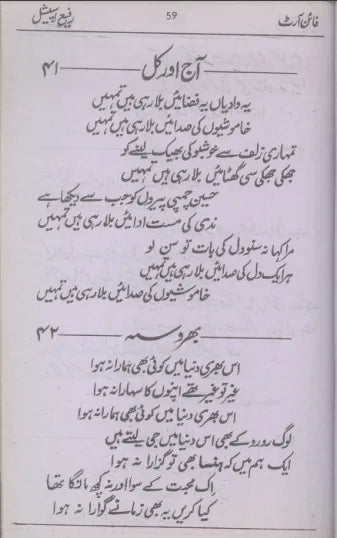 فائن آرٹ 59 رفیع اسپیشل
۴۱ آج اور کل
یہ وادیاں یہ فضائیں بلا رہی ہیں تمہیں
خاموشیوں کی صدائیں بلا رہی ہیں تمہیں
تمہاری زلف سے خوشبو کی بھیک لینے کو
جھکی جھکی سی گھٹائیں بلا رہی ہیں تمہیں
حسین چمپئی پیروں کو جب سے دیکھا ہے
ندی کی مست ادائیں بلا رہی ہیں تمہیں
مرا کہا نہ سنو دل کی بات تو سن لو
ہر ایک دل کی صدائیں بلا رہی ہیں تمہیں
خاموشیوں کی صدائیں بلا رہی ہیں تمہیں
۴۲ بھروسہ
اس بھری دنیا میں کوئی بھی ہمارا نہ ہوا
غیر تو غیر تھے اپنوں کا سہارا نہ ہوا
اس بھری دنیا میں کوئی بھی ہمارا نہ ہوا
لوگ رو رو کے بھی اس دنیا میں جی لیتے ہیں
ایک ہم ہیں کہ ہنسا بھی تو گزارا نہ ہوا
اک محبت کے سوا اور نہ کچھ مانگا تھا
کیا کریں یہ بھی زمانے گوارا نہ ہوا